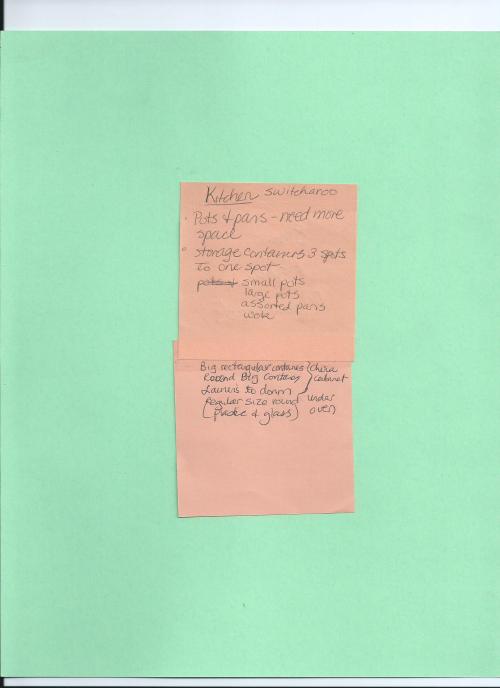 Kitchen switcharoo
Pots & pans - need more
space
storage containers 3 spots
to one spot
small pots
large pots
assorted pans
wok
Big rectangular containes } China
Round Big Contains } cabinet
to donm
Regular size round } under
( & glass) oven